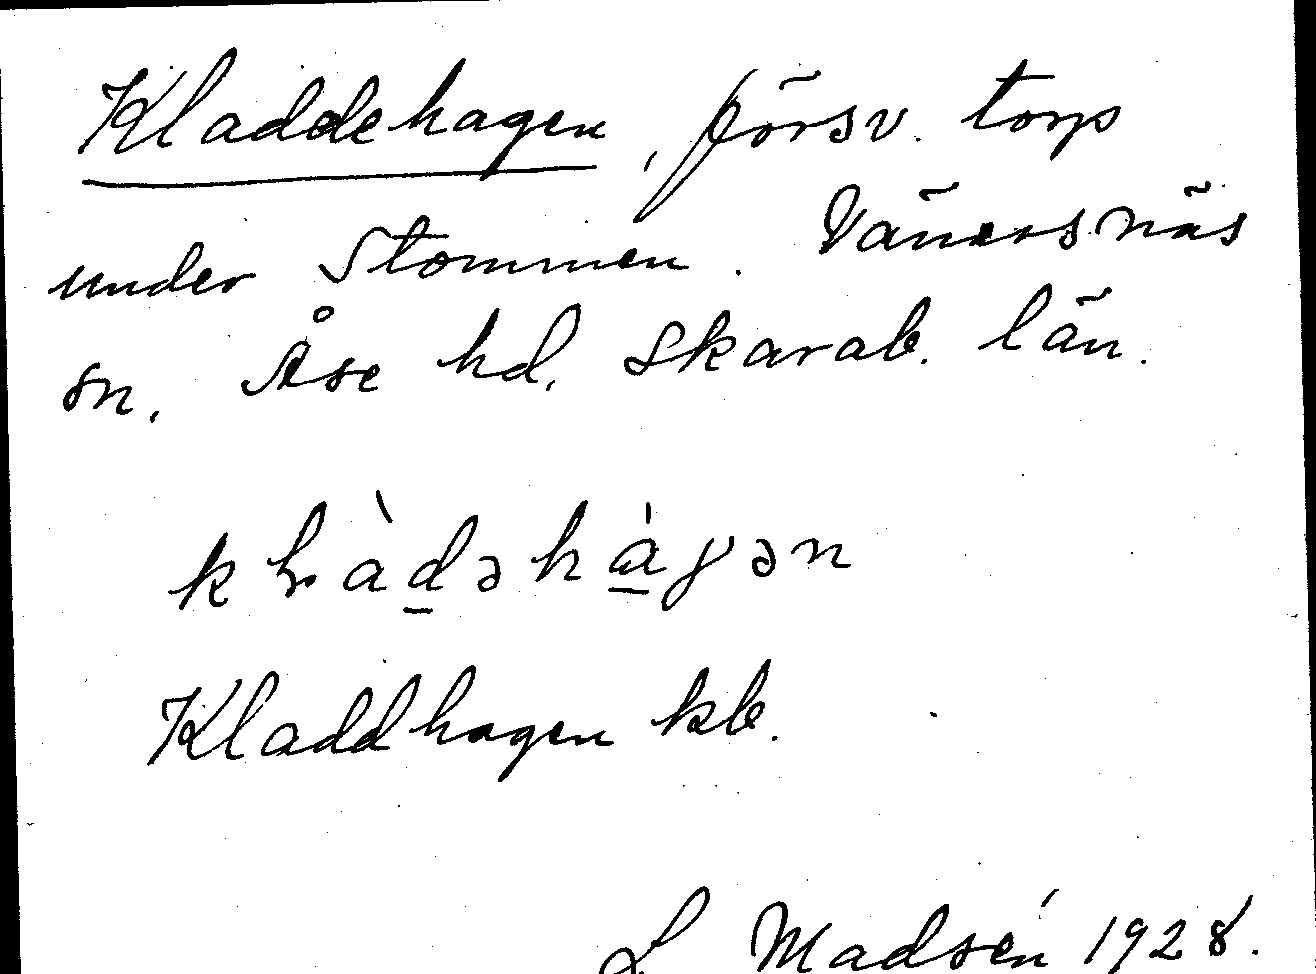 Kladdehagen, försv. torp
under Stommen. Vänersnäs
sn. Åse hd. Skarab. län.
Kladdhagen kb.
L Madsén 1928.